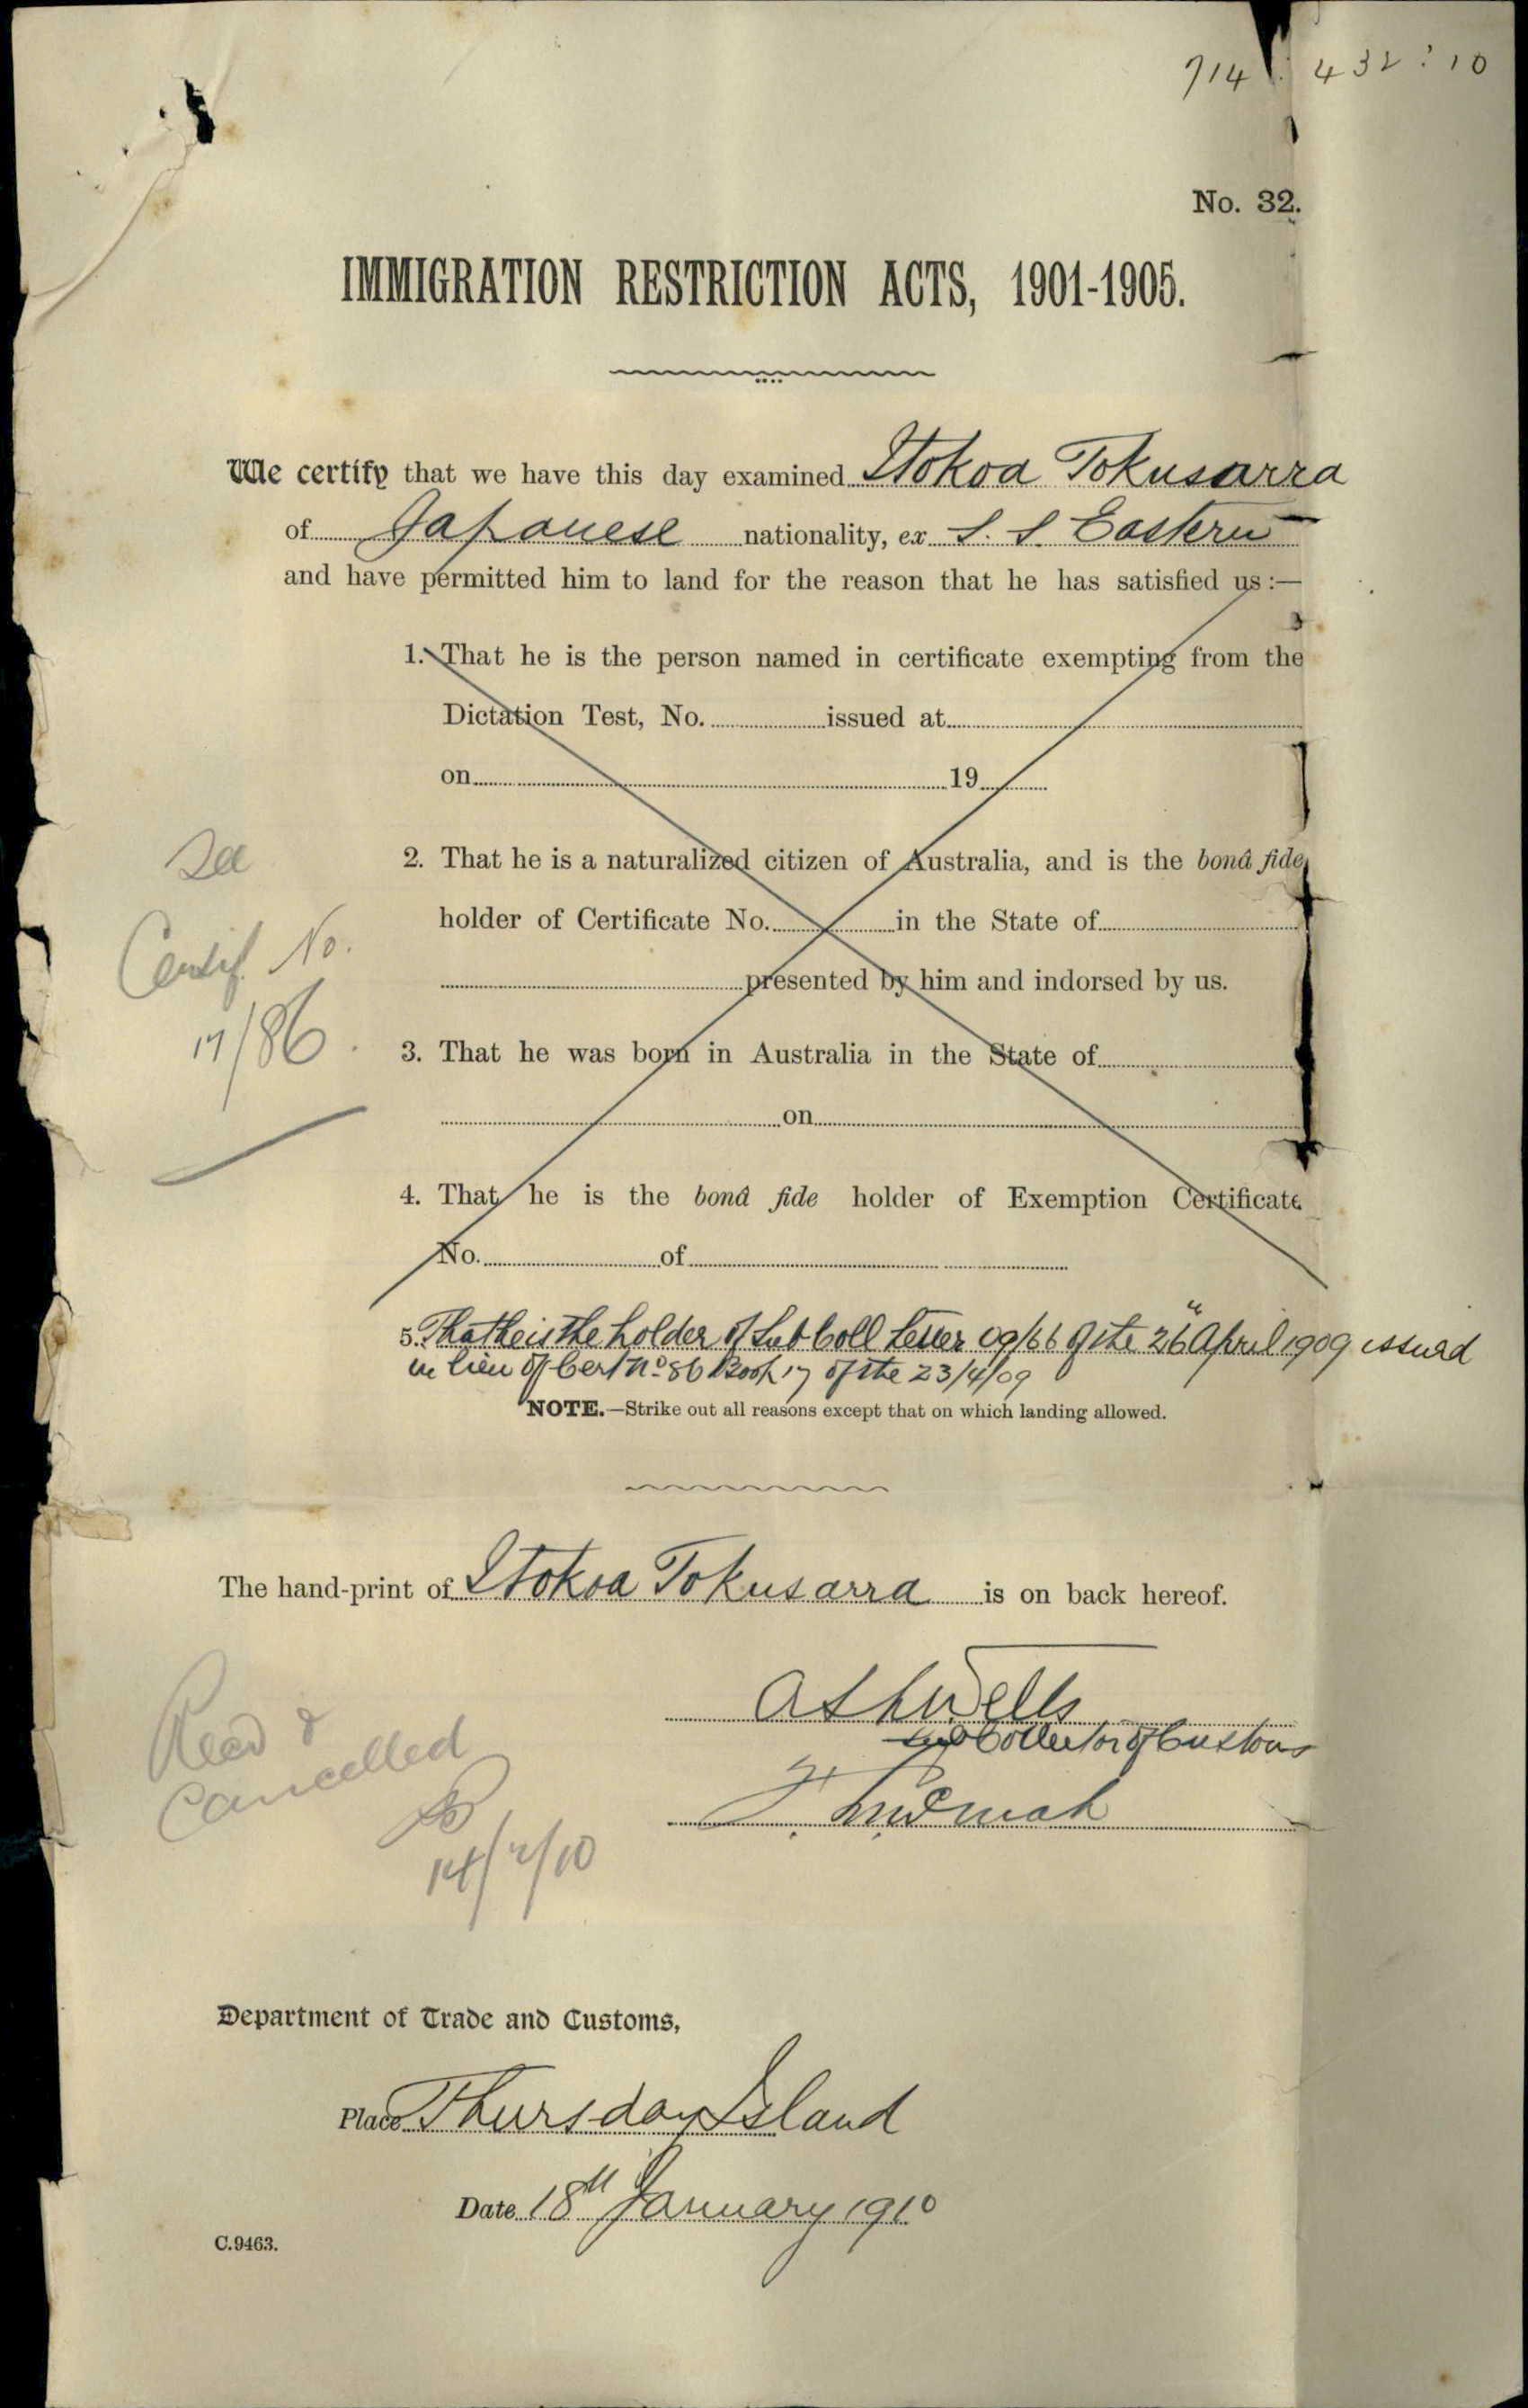 714 : 432 : 10
No. 32.
IMMIGRATION RESTRICTION ACTS, 1901-1905.
We certify that we have this day examined Itokoa Tokusarra
of Japanese nationality, ex S. S. Eastern
and have permitted him to land for the reason that he has satisfied us :—
1. That he is the person named in certificate exempting from the
Dictation Test, No. issued at
on 19
2. That he is a naturalized citizen of Australia, and is the bonâ fide
holder of Certificate No. in the State of
presented by him and indorsed by us.
See
Certif. No.
17/86
3. That he was born in Australia in the State of
on
4. That he is the bonâ fide holder of Exemption Certificate
No. of
5. That he is the holder of Sub Coll Letter 09/66 of the 26" April 1909 issued
in lieu of Cert No. 86 Book 17 of the 23/4/09
NOTE.—Strike out all reasons except that on which landing allowed.
The hand-print of Itokoa Tokusarra is on back hereof.
Wells
Sub Collector of Customs
Read &
Cancelled
14/2/10
Department of Trade and Customs,
Place Thursday Island
Date 18th January 1910
C.9463.